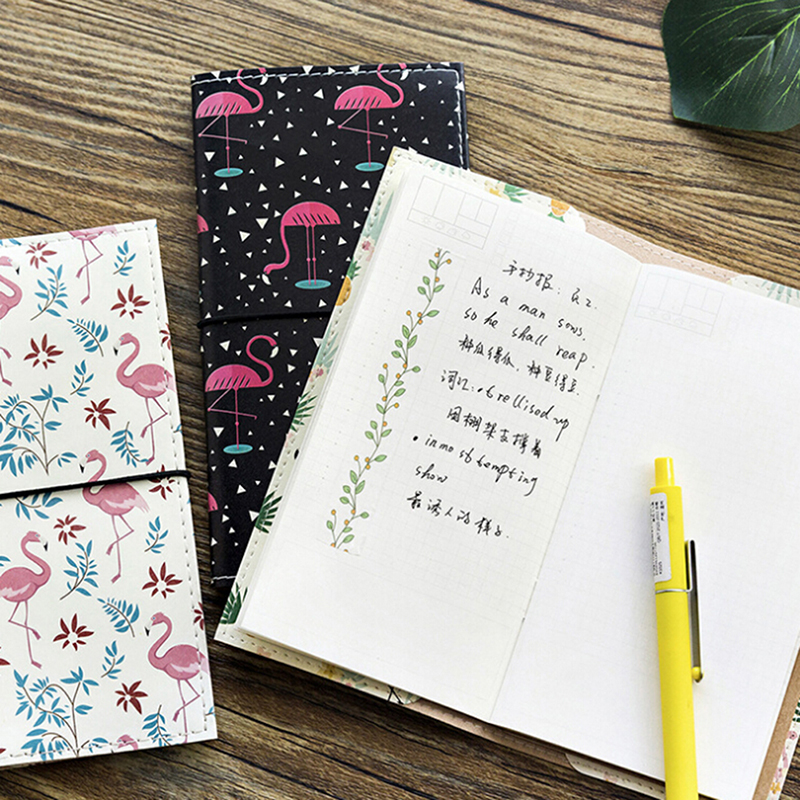 手抄报:
As a man sows.
so he shall reap.
种瓜得瓜,种豆得豆
词汇:• trellised up
用棚架支撑着
• in most tempting
show
最诱人的样子.